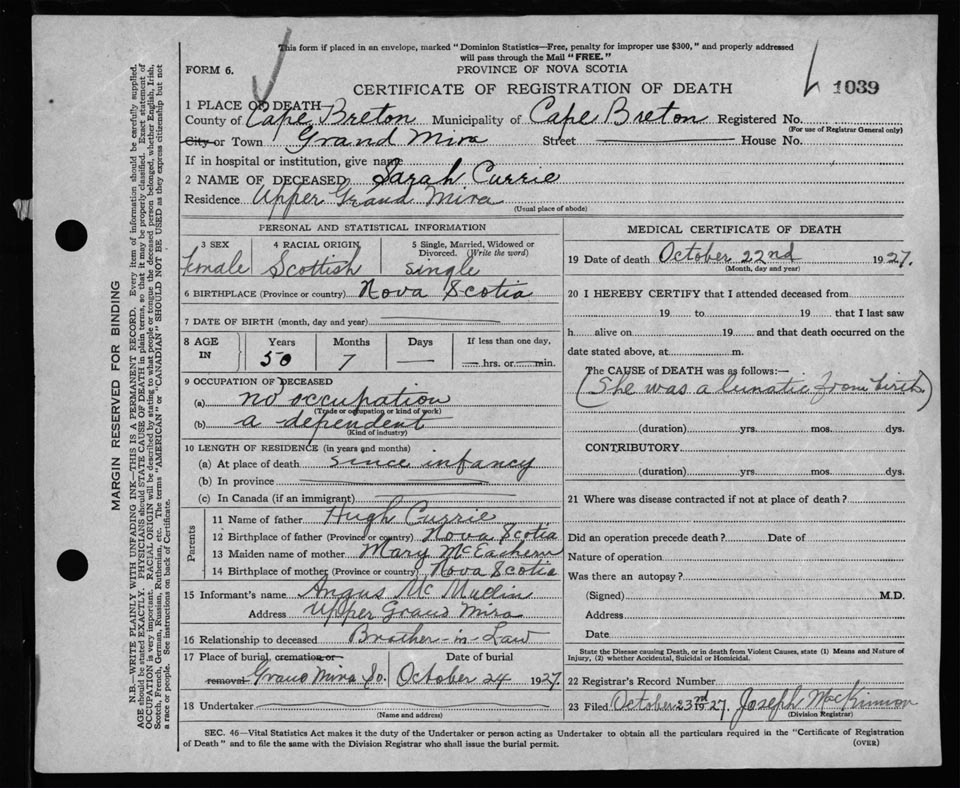 This form if placed in an envelope, marked "Dominion Statistics—Free, penalty for improper use $300," and properly addressed
will pass through the Mail "FREE."
FORM 6.
PROVINCE OF NOVA SCOTIA
CERTIFICATE OF REGISTRATION OF DEATH
1039
1 PLACE OF DEATH
County of Cape Breton Municipality of Cape Breton Registered No.
(For use of Registrar General only)
City or Town Grand Mira Street House No.
If in hospital or institution, give name
2 NAME OF DECEASED Sarah Currie
Residence Upper Grand Mira
(Usual place of abode)
PERSONAL AND STATISTICAL INFORMATION
3 SEX 4 RACIAL ORIGIN 5 Single, Married, Widowed or Divorced. (Write the word)
female Scottish single
6 BIRTHPLACE (Province or country) Nova Scotia
7 DATE OF BIRTH (month, day and year)
8 AGE IN Years Months Days If less than one day,
50 7 — hrs. or min.
9 OCCUPATION OF DECEASED
(a) no occupation
(Trade or occupation or kind of work)
(b) a dependent
(Kind of industry)
10 LENGTH OF RESIDENCE (in years and months)
(a) At place of death since infancy
(b) In province
(c) In Canada (if an immigrant)
Parents
11 Name of father Hugh Currie
12 Birthplace of father (Province or country) Nova Scotia
13 Maiden name of mother Mary McEachern
14 Birthplace of mother (Province or country) Nova Scotia
15 Informant's name Angus Mc
Address Upper Grand Mira
16 Relationship to deceased Brother-in-Law
17 Place of burial, cremation or removal Date of burial
Grand Mira So. October 24 1927.
18 Undertaker
(Name and address)
MEDICAL CERTIFICATE OF DEATH
19 Date of death October 22nd 1927.
(Month, day and year)
20 I HEREBY CERTIFY that I attended deceased from
19 to 19 that I last saw
h alive on 19 and that death occurred on the
date stated above, at m.
The CAUSE of DEATH was as follows:—
(She was a lunatic from birth)
(duration) yrs. mos. dys.
CONTRIBUTORY
(duration) yrs. mos. dys.
21 Where was disease contracted if not at place of death?
Did an operation precede death? Date of
Nature of operation
Was there an autopsy?
(Signed) M.D.
Address
Date
State the Disease causing Death, or in death from Violent Causes, state (1) Means and Nature of
Injury, (2) whether Accidental, Suicidal or Homicidal.
22 Registrar's Record Number
23 Filed October 23rd 1927. Joseph MacKinnon
(Division Registrar)
SEC. 46—Vital Statistics Act makes it the duty of the Undertaker or person acting as Undertaker to obtain all the particulars required in the "Certificate of Registration
of Death" and to file the same with the Division Registrar who shall issue the burial permit.
(OVER)
MARGIN RESERVED FOR BINDING
N.B.—WRITE PLAINLY WITH UNFADING INK—THIS IS A PERMANENT RECORD. Every item of information should be carefully supplied.
AGE should be stated EXACTLY. PHYSICIANS should STATE CAUSE OF DEATH in plain terms, so that it may be properly classified. Exact statement of
OCCUPATION is very important. RACIAL ORIGIN will be described by stating to what people or tongue the deceased person belonged, whether English, Irish,
Scotch, French, German, Russian, Ruthenian, etc. The terms "AMERICAN" or "CANADIAN" SHOULD NOT BE USED as they express citizenship but not
a race or people. See instructions on back of Certificate.